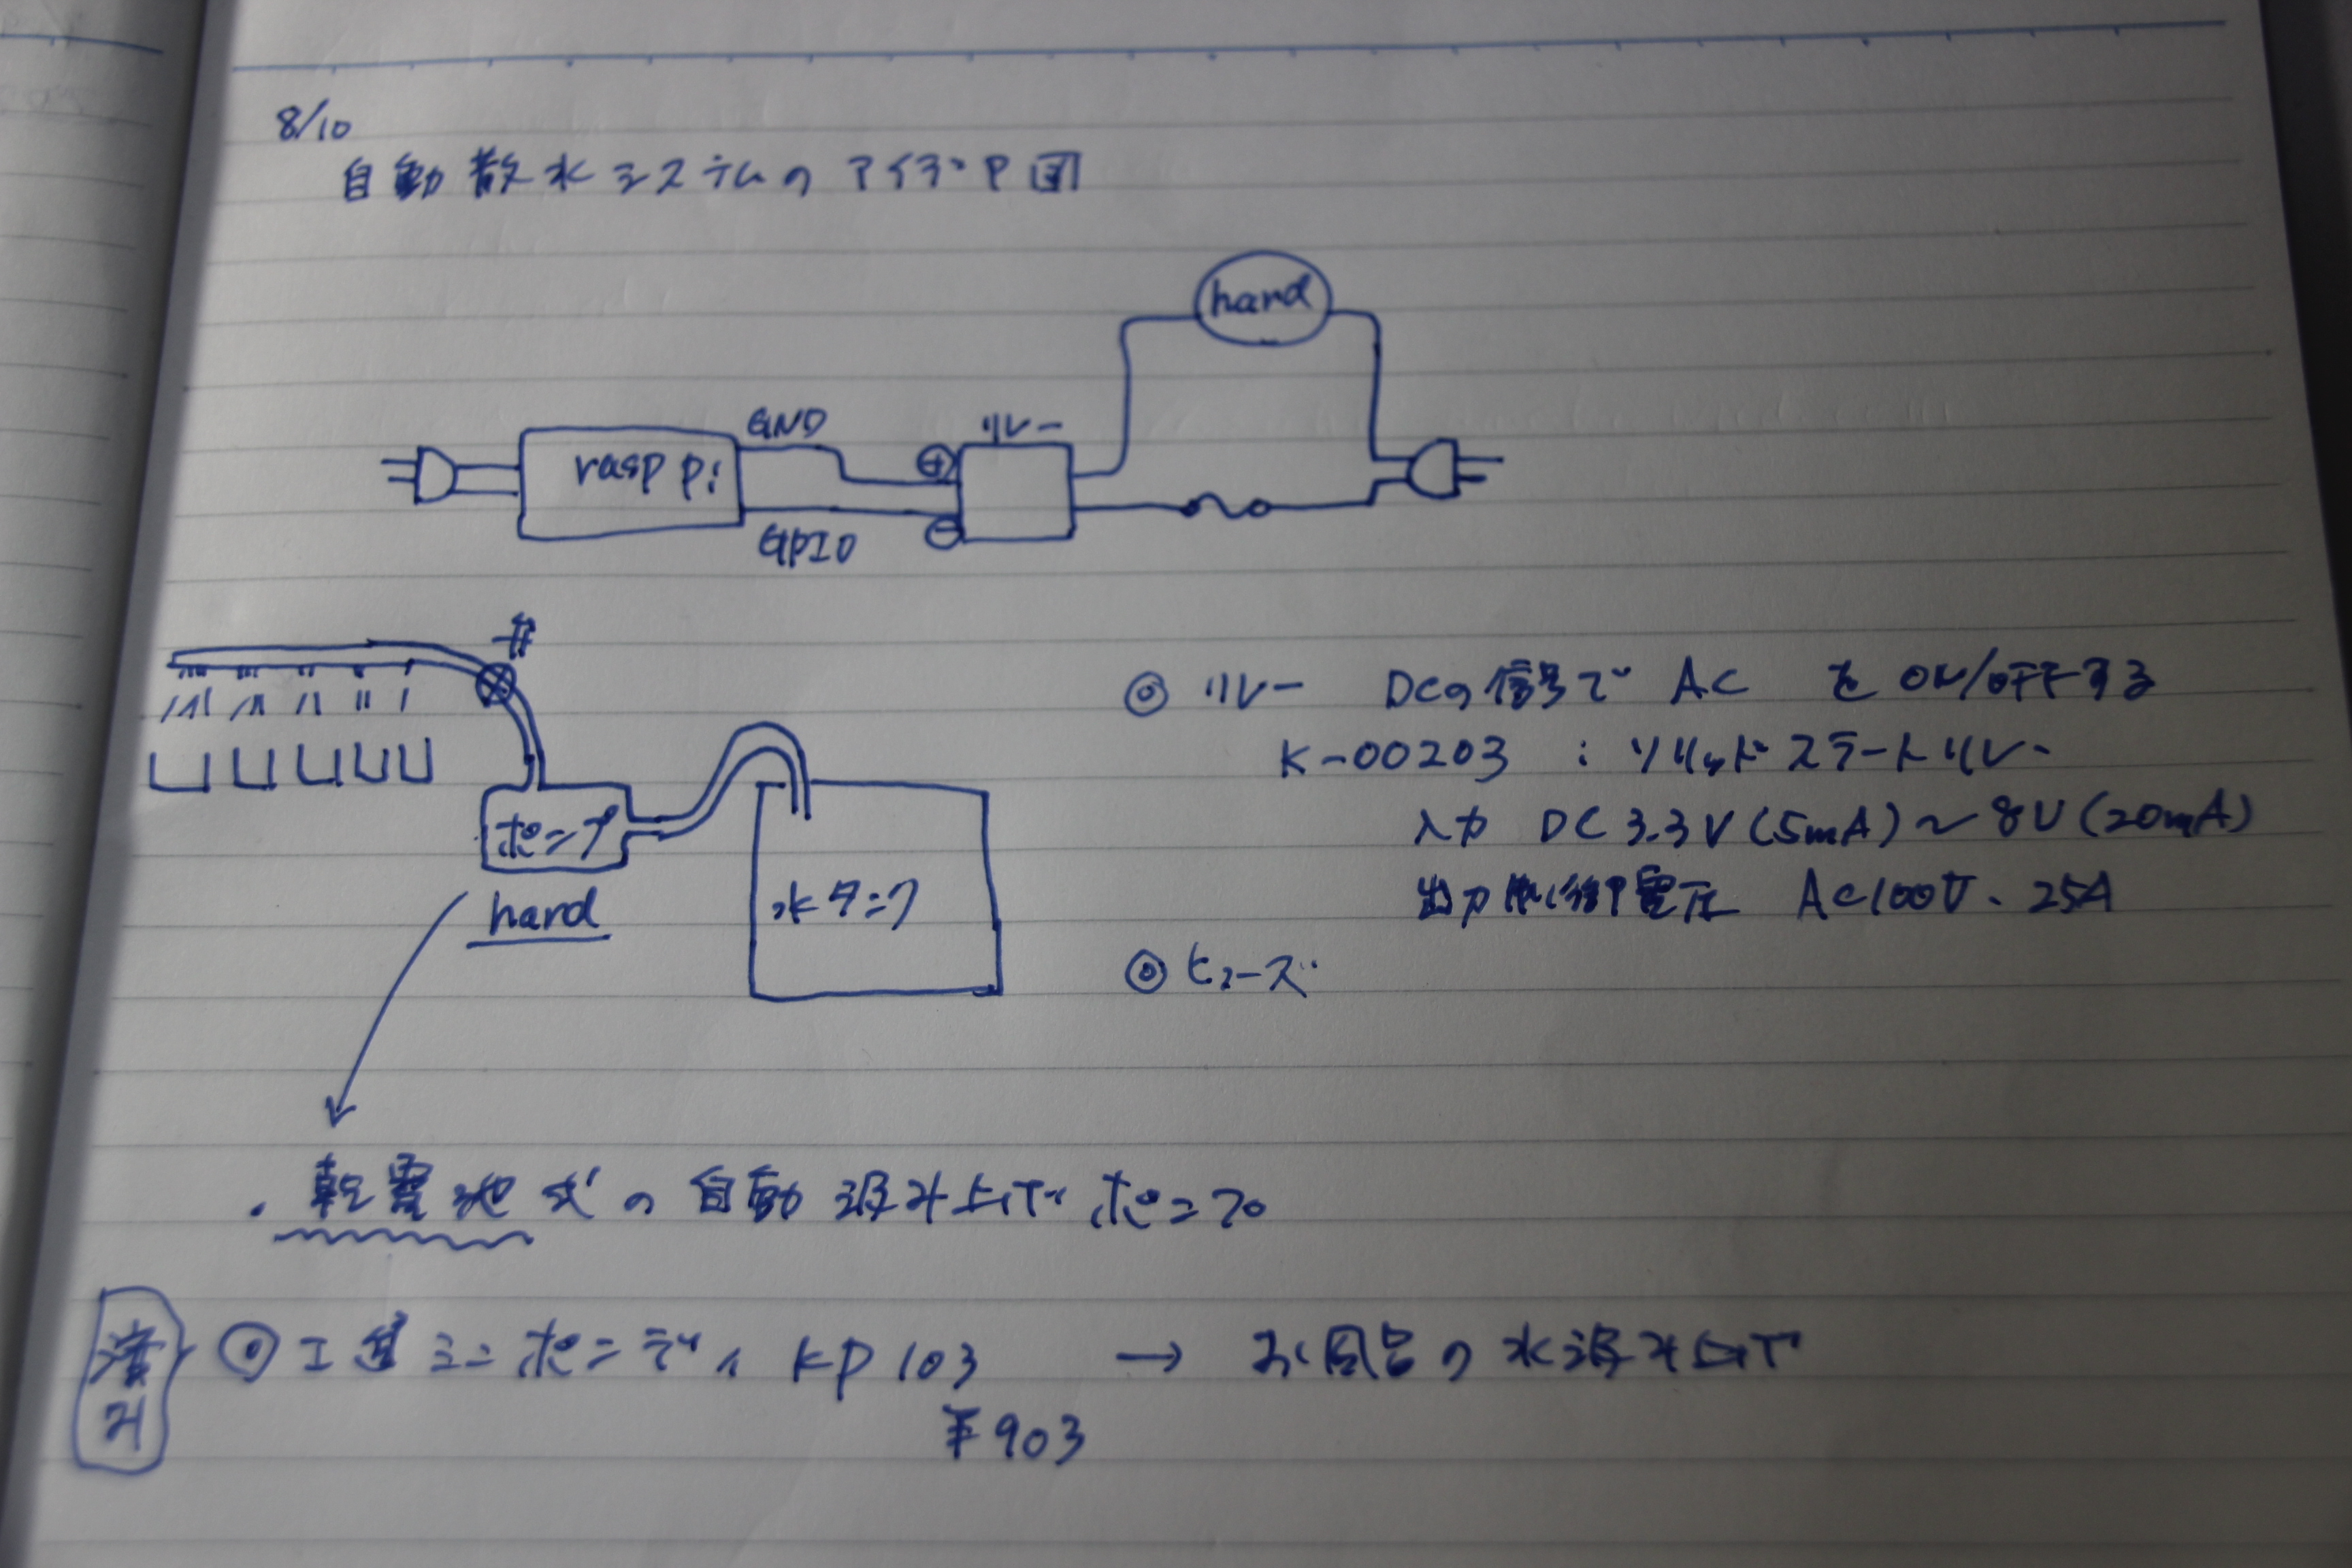 8/10
自動散水システムのアイデア図
hard
GND
リレー
rasp pi
⊕
⊖
GPIO
ポンプ
hard
水タンク
◎ リレー DCの信号で AC を ON/OFFする
K-00203 : ソリッドステートリレー
入力 DC 3.3V (5mA) ~ 8V (20mA)
出力制御電圧 AC100V、25A
◎ ヒューズ
・乾電池式の自動汲み上げポンプ
済み
◎ 工進ミニポンディ KP103 → お風呂の水汲み上げ
¥903